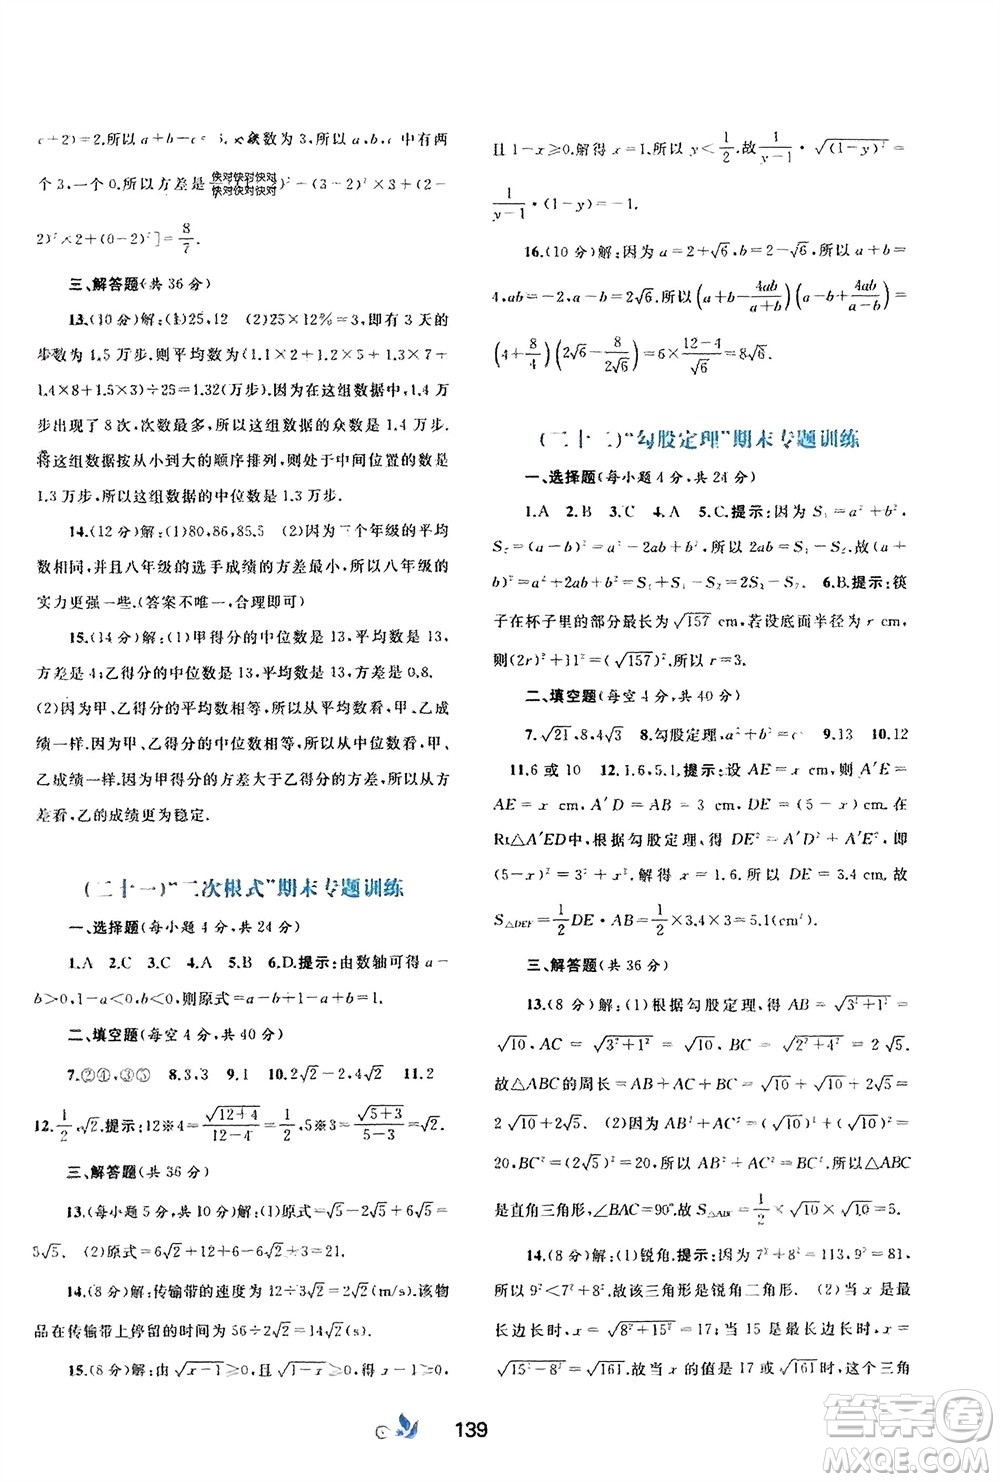 c+2)=2,所以a+b+c=6,众数为3,所以a,b,c中有两
个3,一个0,所以方差是 ²+(3-2)²×3+(2-
2)²×2+(0-2)²]=8/7.
三、解答题(共36分)
13.(10分)解:(1)25,12 (2)25×12%=3,即有3天的
步数为1.5万步,则平均数为(1.1×2+1.2×5+1.3×7+
1.4×8+1.5×3)÷25=1.32(万步).因为在这组数据中,1.4万
步出现了8次,次数最多,所以这组数据的众数是1.4万步.
将这组数据按从小到大的顺序排列,则处于中间位置的数是
1.3万步,所以这组数据的中位数是1.3万步.
14.(12分)解:(1)80,86,85.5 (2)因为三个年级的平均
数相同,并且八年级的选手成绩的方差最小,所以八年级的
实力更强一些.(答案不唯一,合理即可)
15.(14分)解:(1)甲得分的中位数是13,平均数是13,
方差是4;乙得分的中位数是13,平均数是13,方差是0.8.
(2)因为甲、乙得分的平均数相等,所以从平均数看,甲、乙成
绩一样.因为甲、乙得分的中位数相等,所以从中位数看,甲、
乙成绩一样.因为甲得分的方差大于乙得分的方差,所以从方
差看,乙的成绩更为稳定.
(二十一)“二次根式”期末专题训练
一、选择题(每小题4分,共24分)
1.A 2.C 3.C 4.A 5.B 6.D.提示:由数轴可得a-
b>0,1-a<0,b<0,则原式=a-b+1-a+b=1.
二、填空题(每空4分,共40分)
7.②④,③⑤ 8.3,3 9.1 10.2√2 -2√3 11.2
12.1/2,√2.提示:12※4=√(12+4)/(12-4)=1/2,5※3=√(5+3)/(5-3)=√2.
三、解答题(共36分)
13.(每小题5分,共10分)解:(1)原式=√5-2√5+6√5=
5√5. (2)原式=6√2-12√2+9√2=3√2.
14.(8分)解:传输带的速度为12÷3√2=2√2(m/s),该物
品在传输带上停留的时间为56÷2√2=14√2(s).
15.(8分)解:因为√(x-1)≥0,且√(1-x)≥0,所以x-1≥0,
且1-x≥0.解得x=1,所以y<1/2.故1/(y-1)·√(1-y)²=
1/(y-1)·(1-y)=-1.
16.(10分)解:因为a=2+√6,b=2-√6,所以a+b=
4,ab=-2,a-b=2√6.所以(a+b-4ab/(a+b))(a-b+4ab/(a-b))=
(4+8/4)(2√6-8/(2√6))=6×(12-4)/√6=8√6.
(二十二)“勾股定理”期末专题训练
一、选择题(每小题4分,共24分)
1.A 2.B 3.C 4.A 5.C.提示:因为S₁=a²+b²,
S₂=(a-b)²=a²-2ab+b²,所以2ab=S₁-S₂.故(a+
b)²=a²+2ab+b²=S₁+S₁-S₂=2S₁-S₂. 6.B.提示:筷
子在杯子里的部分最长为√157 cm,若设底面半径为r cm,
则(2r)²+11²=(√157)².所以r=3.
二、填空题(每空4分,共40分)
7.√21,8,4√3 8.勾股定理,a²+b²=c² 9.13 10.12
11.6或10 12.1.6,5.1.提示:设AE=x cm,则A′E=
AE=x cm,A′D=AB=3 cm,DE=(5-x) cm.在
Rt△A′ED中,根据勾股定理,得DE²=A′D²+A′E²,即
(5-x)²=3²+x².解得x=1.6,所以DE=3.4 cm,故
S△DEF=1/2DE·AB=1/2×3.4×3=5.1(cm²).
三、解答题(共36分)
13.(8分)解:(1)根据勾股定理,得AB=√(3²+1²)=
√10,AC=√(3²+1²)=√10,BC=√(2²+4²)=2√5.
故△ABC的周长=√10+√10+2√5=
2√10+2√5. (2)因为AB²+AC²=(√10)²+(√10)²=
20,BC²=(2√5)²=20,所以AB²+AC²=BC².所以△ABC
是直角三角形,∠BAC=90°.故S△ABC=1/2×√10×√10=5.
14.(8分)解:(1)锐角.提示:因为7²+8²=113,9²=81,
所以9²<7²+8².故该三角形是锐角三角形. (2)当x为最
长边长时,x=√(8²+15²)=17;当15为最长边长时,x=
√(15²-8²)=√161.故当x的值是17或√161时,这个三角
139
答案卷
MXQE.COM